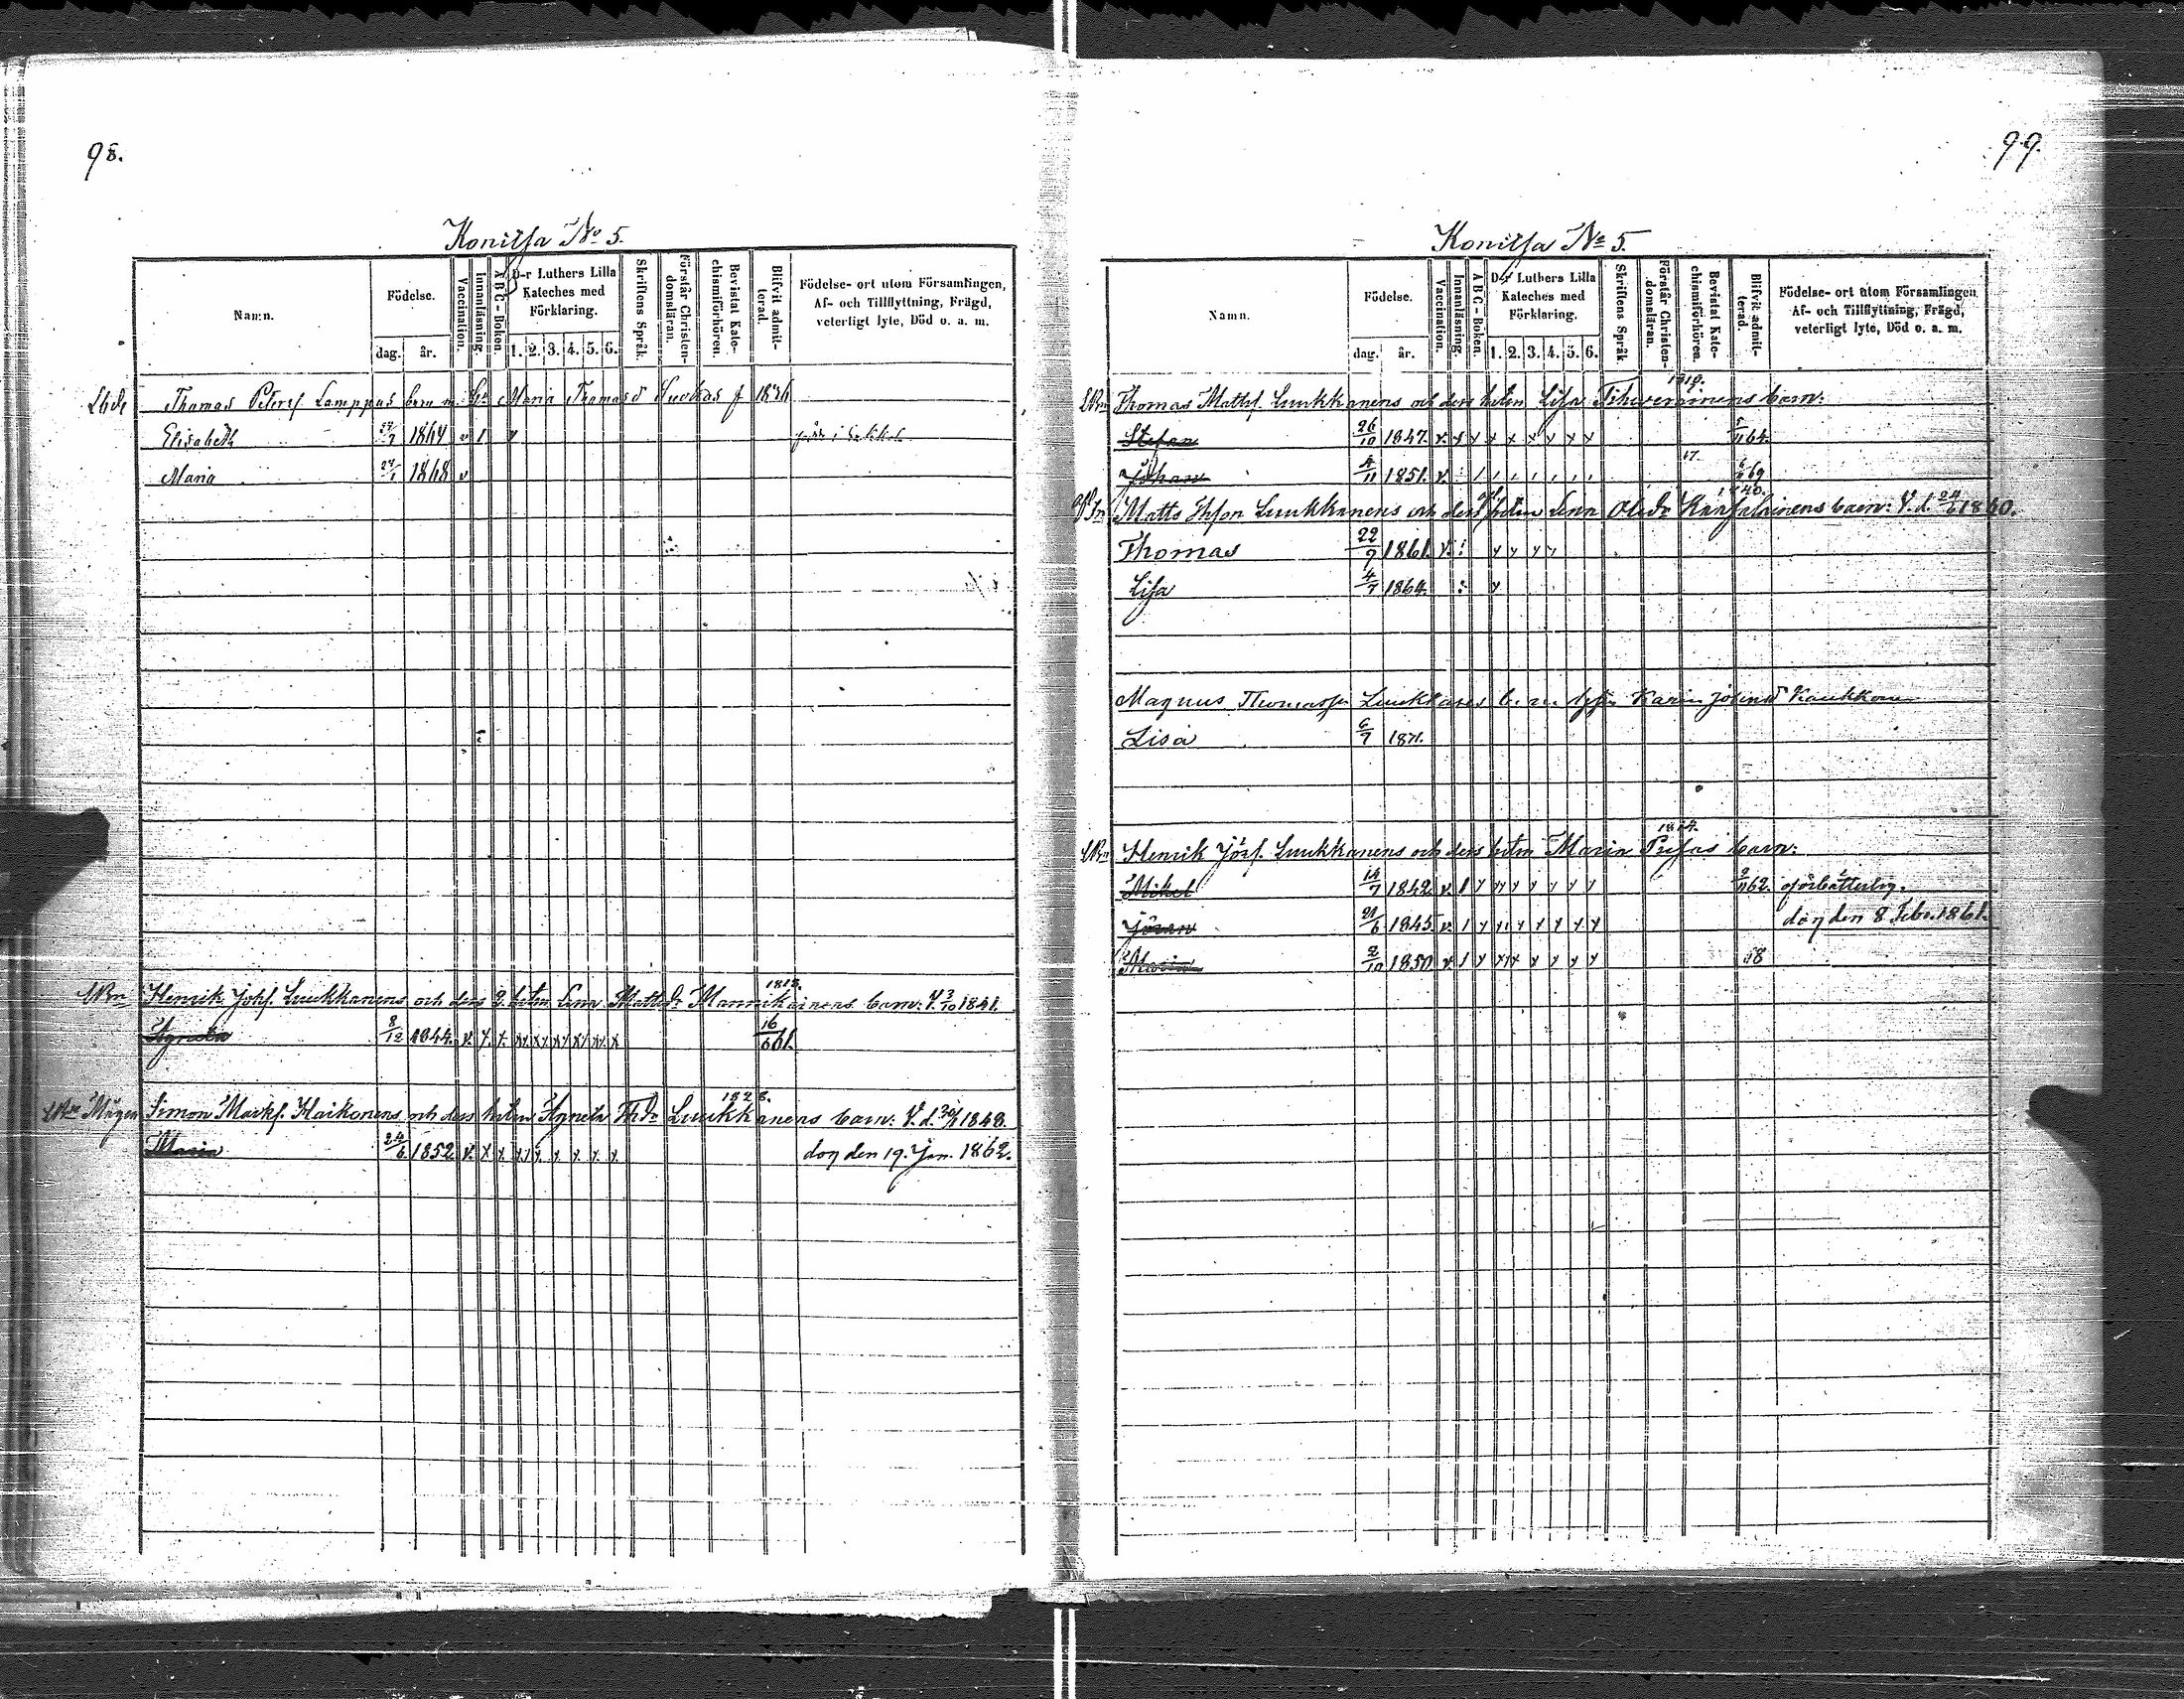 98.
Konitsa No 5.
Namn.
Födelse.
dag. år.
Vaccination.
Innanläsning.
A B C - Boken.
D-r Luthers Lilla Kateches med Förklaring.
1. 2. 3. 4. 5. 6.
Skriftens Språk.
Förstår Christendomsläran.
Bevistat Katechismiförhören.
Blifvit admitterad.
Födelse- ort utom Församlingen, Af- och Tillflyttning, Frägd, veterligt lyte, Död o. a. m.
Thomas Petersf Lamppus barn m. Maria Thomasd f 1836
Elisabeth 1864 v 1 v
Maria 1868 v
1818.
Henrik Johsf. Luukkanens och dess 2. hstru Lena Mattsdr Mannikainens barn: V. 3/10 1841.
Agneta 8/12 1844. v. x. x. xx xx xx xx xx x 16/6 61.
1828.
Simon Marksf. Haikonens och dess hstru Agneta Thdr Luukkanens barn: V. d. 1848.
Maria 24/6 1852 v. x x x x x x x x död den 19. Jan. 1862.
99.
Konitsa No 5.
Namn.
Födelse.
dag. år.
Vaccination.
Innanläsning.
A B C - Boken.
D-r Luthers Lilla Kateches med Förklaring.
1. 2. 3. 4. 5. 6.
Skriftens Språk
Förstår Christendomsläran.
Bevistat Katechismiförhören.
Blifvit admitterad.
Födelse- ort utom Församlingen Af- och Tillflyttning, Frägd, veterligt lyte, Död o. a. m.
1819.
Thomas Mattsf. Luukkanens och dess hstru Lisa Tihverainens barn:
Stefan 26/10 1847. v. x x x x x x x x 64.
Johan 4/11 1851. v. 69
1840.
Matts Thsson Luukkanens och dess hstru Lena Olsdr Karjalainens barn: V. d. 24/6 1860.
Thomas 22/9 1861. v. x x x x
Lisa 4/7 1864. x
Magnus Thomasson Luukkanens b. m. Karin Johansd Kaukkonen
Lisa 6/7 1871.
1814.
Henrik Jörsf. Luukkanens och dess hstru Maria Pusas barn:
Mikel 14/7 1842. v. 1 x xx x x x x x 62. oförbätterlig.
Jöran 21/6 1845. v. 1 x x x x x x x död den 8 Febr. 1861.
Maria 2/10 1850 v. 1 x x x x x x x 68